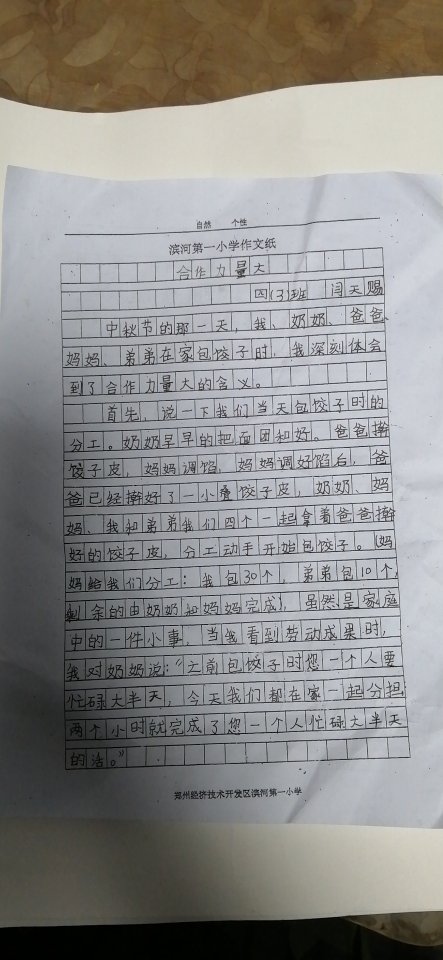 自然 个性
滨河第一小学作文纸
合作力量大
四(3)班 闫天赐
中秋节的那一天，我、奶奶、爸爸
妈妈、弟弟在家包饺子时，我深刻体会
到了合作力量大的含义。
首先，说一下我们当天包饺子时的
分工。奶奶早早的把面团和好。爸爸擀
饺子皮，妈妈调馅，妈妈调好馅后，爸
爸已经擀好了一小叠饺子皮，奶奶、妈
妈、我和弟弟我们四个一起拿着爸爸擀
好的饺子皮，分工动手开始包饺子。(妈
妈给我们分工：我包30个，弟弟包10个，
剩余的由奶奶和妈妈完成)，虽然是家庭
中的一件小事，当我看到劳动成果时，
我对奶奶说：“之前包饺子时您一个人要
忙碌大半天，今天我们都在家一起分担
两个小时就完成了您一个人忙碌大半天
的活。”
郑州经济技术开发区滨河第一小学